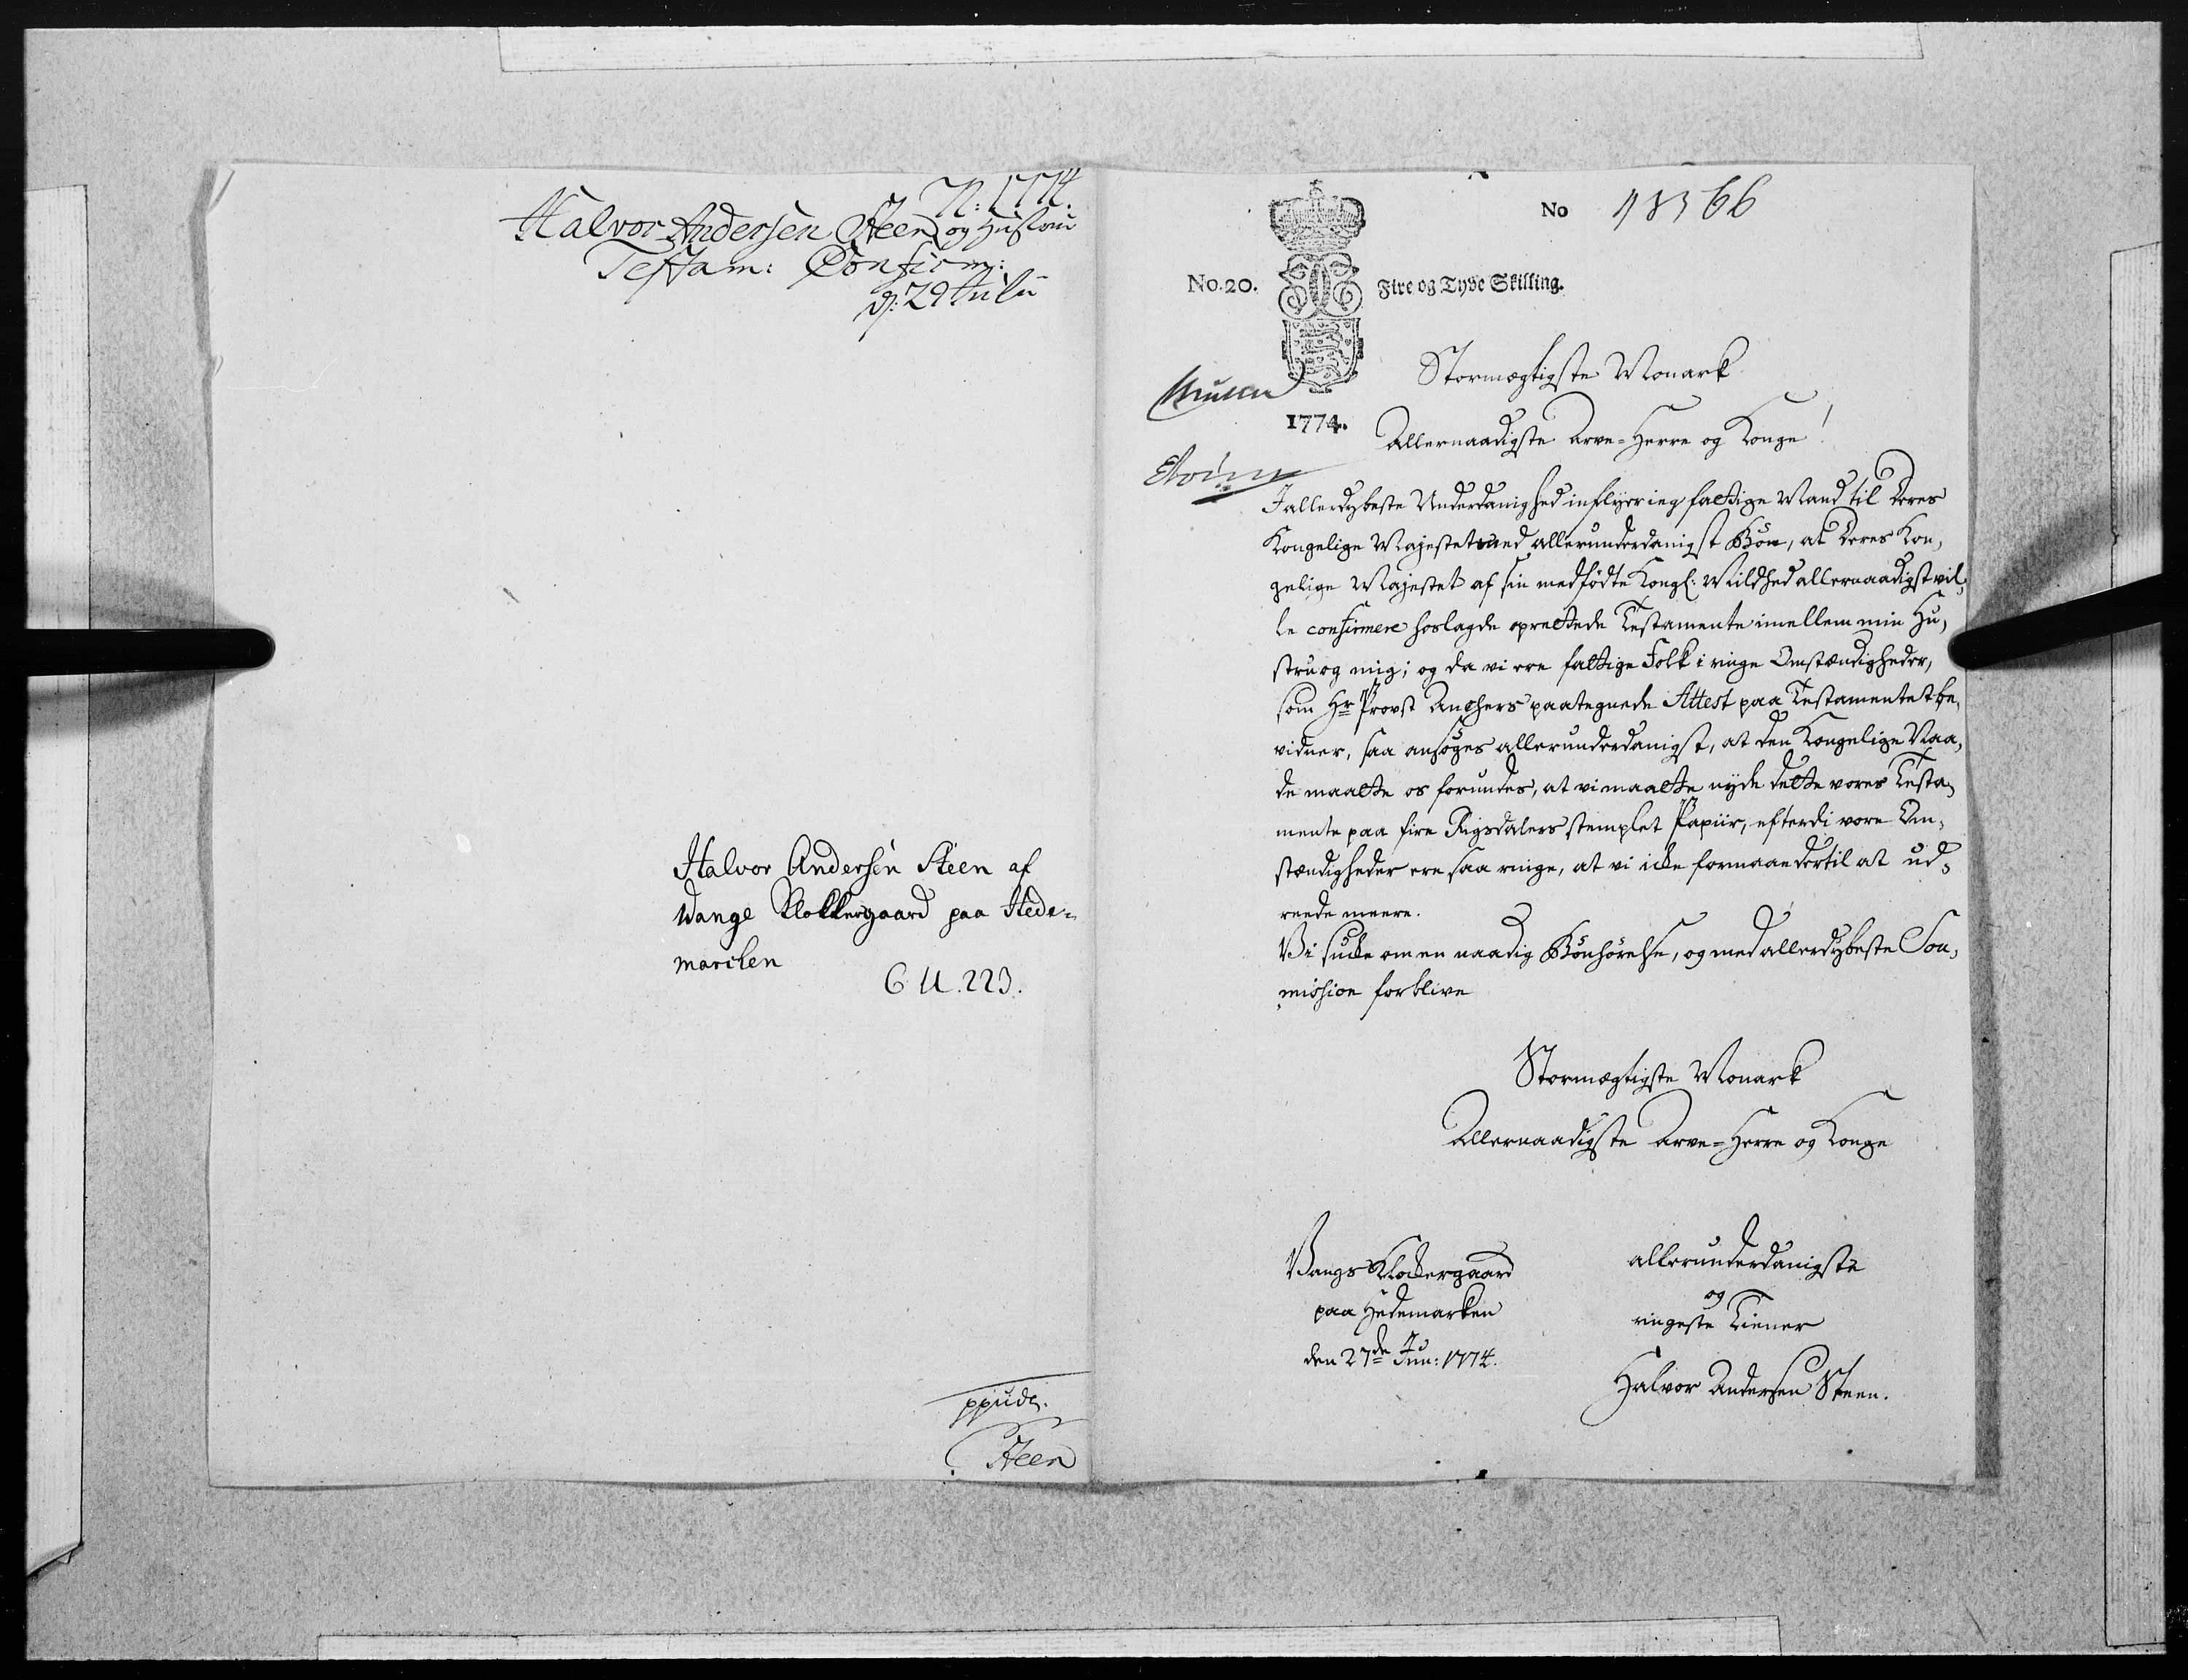 N: 1774.
Halvor Andersen Steen og Hustrue
Testam: Confirm:
d: 29 Julii
Halvor Andersen Steen af
Wange Klokkergaard paa Hede-
marchen
G. U. 223.
Steen
No 48366
No. 20.
Fire og Tyve Skilling.
1774.
Stormægtigste Monark
Allernaadigste Arve-Herre og Konge!
I allerdybeste Underdanighed inflyer ieg fattige Mand til Deres
Kongelige Majestet med allerunderdanigst Bön, at Deres Kon,
gelige Majestet af sin medfödte Kongl: Mildhed allernaadigst vil,
le confirmere hoslagde oprettede Testamente imellem min Hu,
stru og mig; og da vi ere fattige Folk i ringe Omstændigheder,
som Hr Provst Anchers paategnede Attest paa Testamentet be,
vidner, saa ansöges allerunderdanigst, at den Kongelige Naa,
de maatte os forundes, at vi maatte nyde dette vores Testa,
mente paa fire Rigsdalers stemplet Papiir, efterdi vore Om,
stændigheder ere saa ringe, at vi icke formaae dertil at ud,
reede meere.
Vi sucke om en naadig Bönhörelse, og med allerdybeste Sou,
mission forblive
Stormægtigste Monark
Allernaadigste Arve-Herre og Konge
Vangs Klockergaard
paa Hedemarken
den 27de Jun: 1774.
allerunderdanigste
og
ringeste Tiener
Halvor Andersen Steen.